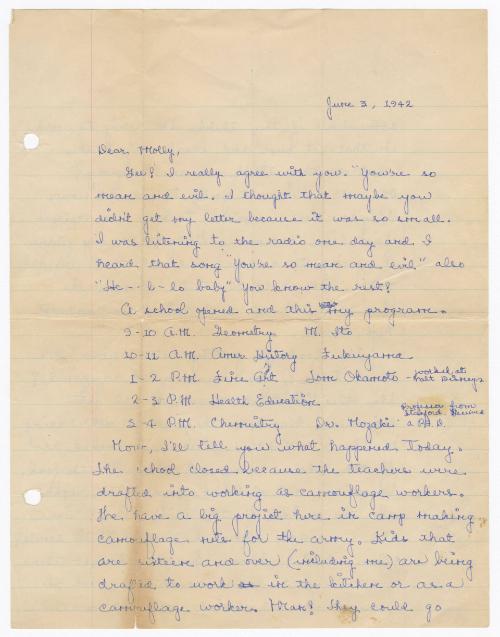 June 3, 1942
Dear Molly,
Gee! I really agree with you. "You're so
mean and evil. I thought that maybe you
didn't get my letter because it was so small.
I was listening to the radio one day and I
heard that song "You're so mean and evil" also
"He - - l - lo baby" You know the rest?
A school opened and this my program.
9-10 A.M. Geometry M. Ito
10-11 A.M. Amer History Fukuyama
1-2 P.M. Fine Art Tom Okamoto - worked at
Walt Disneys
2-3 P.M. Health Education
Professor from
Stanford
3-4 P.M. Chemistry Dr. Mozaki a P.H.D.
Mom, I'll tell you what happened today.
The school closed because the teachers were
drafted into working as camouflage workers.
We have a big project here in camp making
camouflage nets for the army. Kids that
are sixteen and over (including me) are being
drafted to work in the kitchen or as a
camouflage worker. Mean? They could go